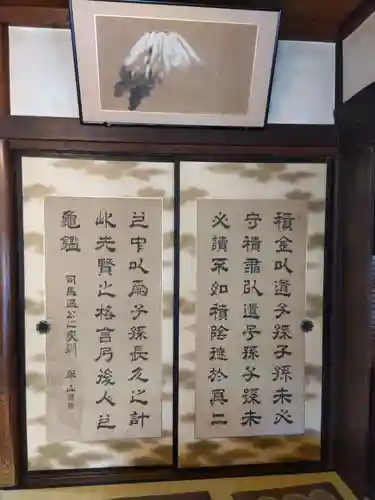 積金以遺子孫子孫未必
守積書以遺子孫子孫未
必讀不如積陰德於冥〻
之中以爲子孫長久之計
此先賢之格言乃後人之
龜鑑
司馬溫公之家訓